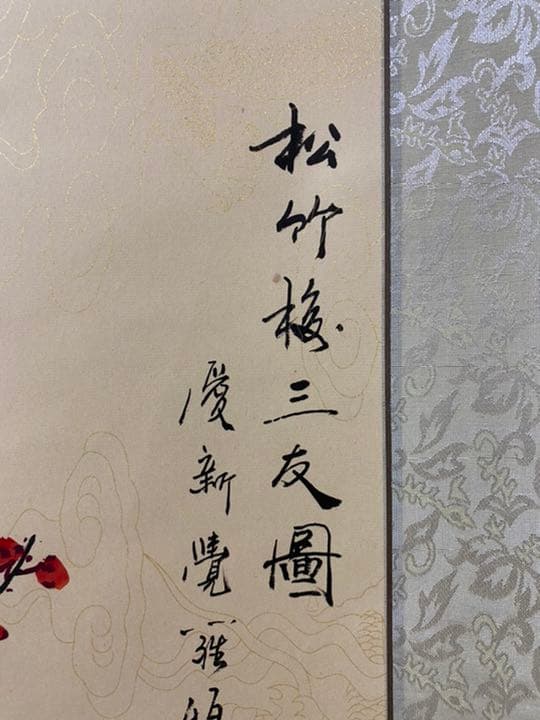 松竹梅三友圖
愛新覺羅